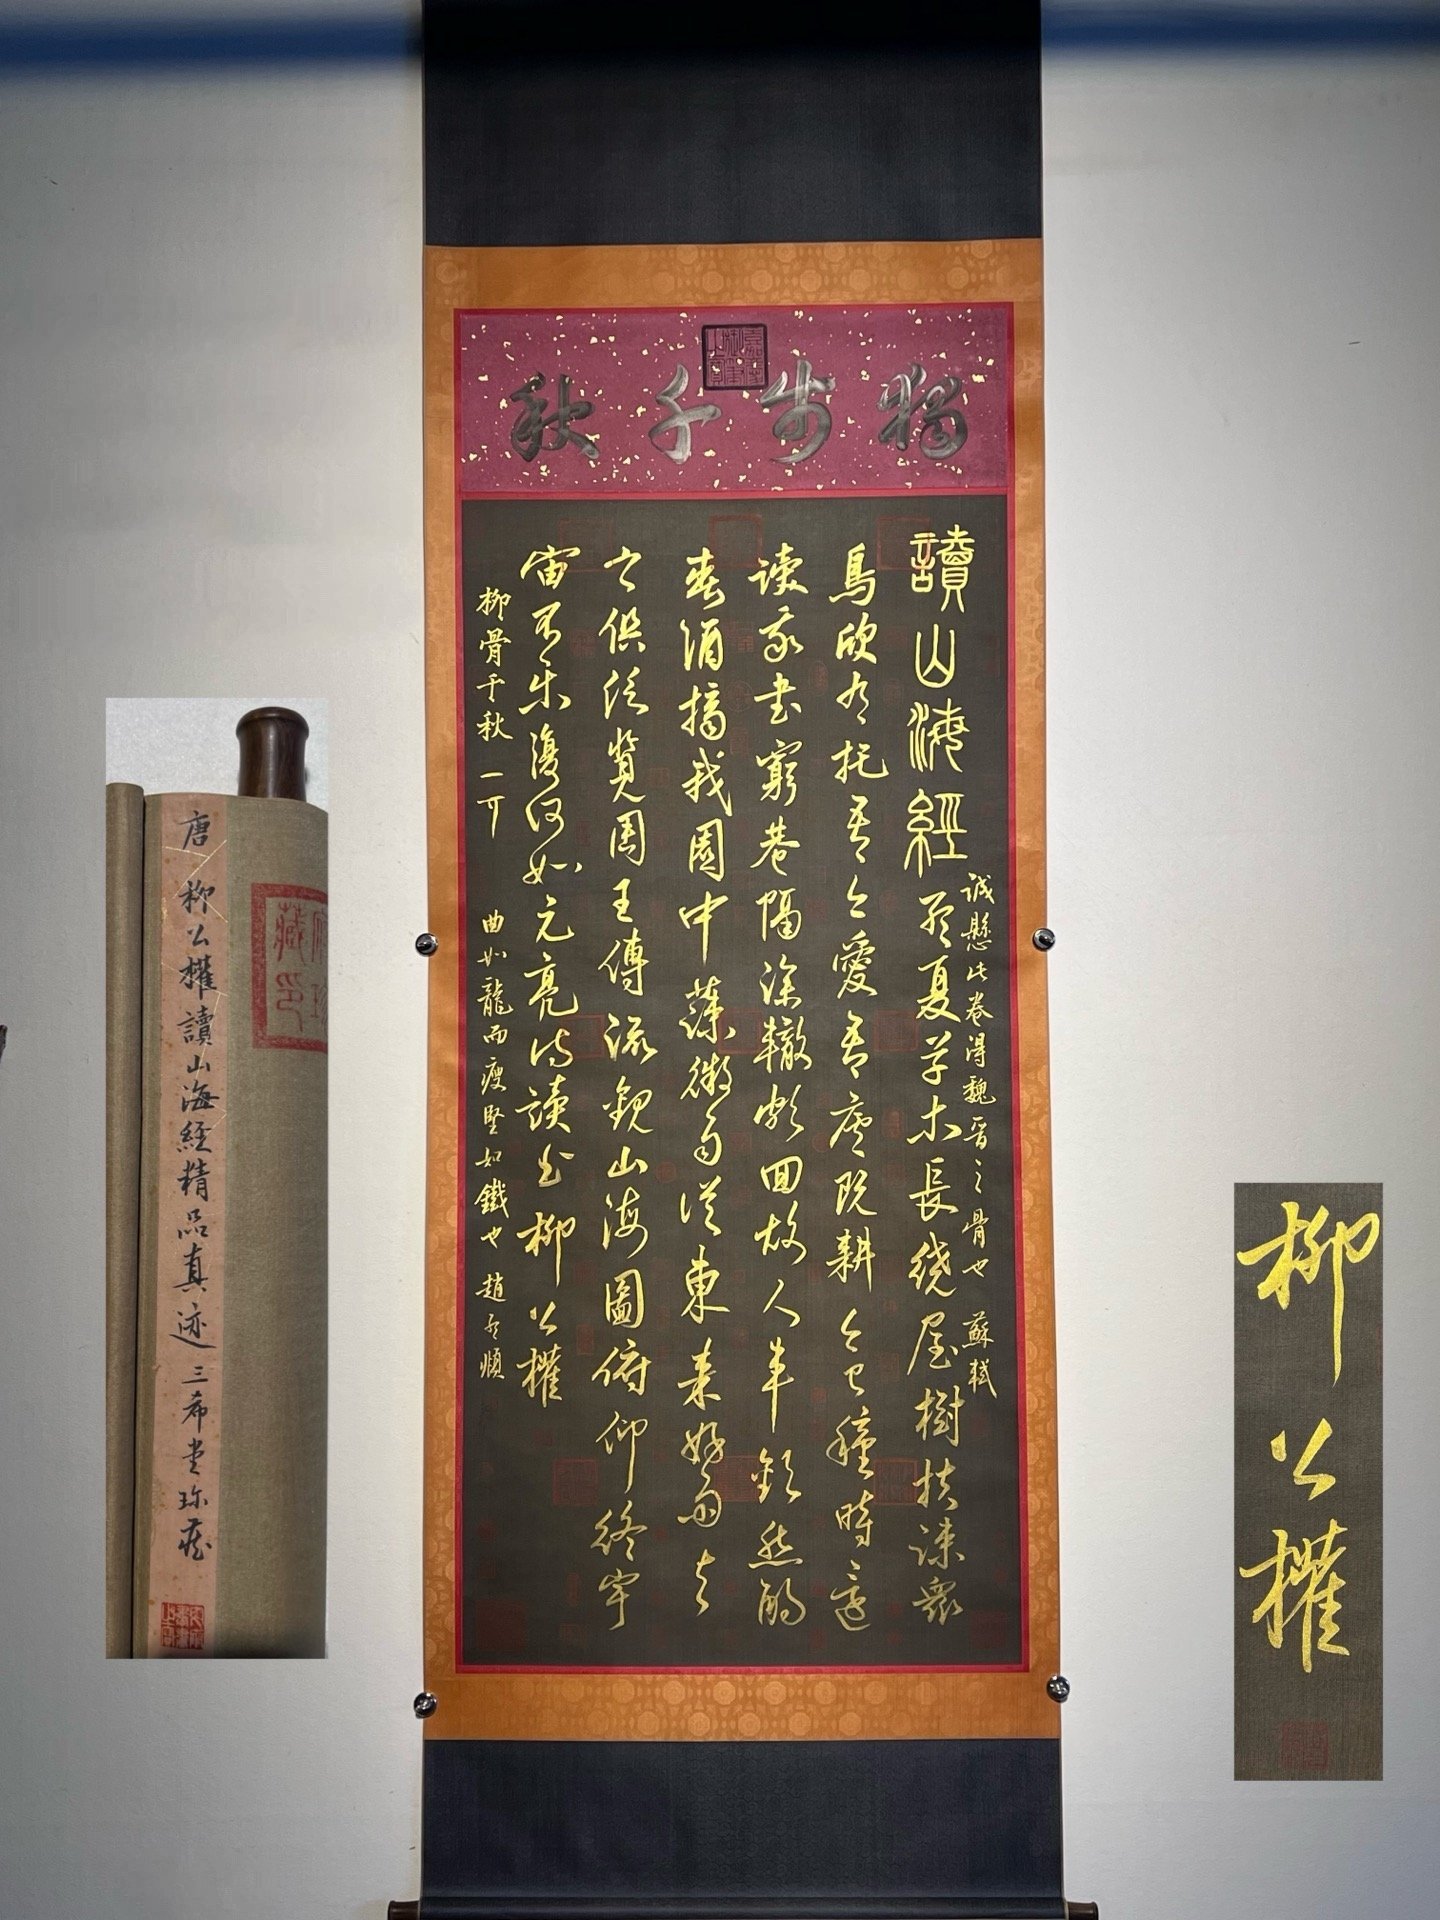 獨步千秋
讀山海經孟夏草木長繞屋樹扶疎眾
誠懸此卷得魏晋之骨也 蘇軾
鳥欣有托吾亦愛吾廬既耕亦已種時還
读我書窮巷隔深轍頗回故人車欵然酌
春酒摘我園中蔬微雨從東來好風與
之俱泛覽周王傳流觀山海圖俯仰終宇
宙不樂復何如元亮詩讀書 柳公權
柳骨千秋一可 曲如龍而瘦堅如鐵也 趙孟頫
唐 柳公權讀山海經精品真迹 三希堂珍藏
柳公權